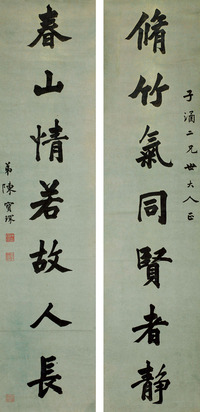 子涌二兄世大人正
脩竹氣同賢者靜
春山情若故人長
弟陳寶琛